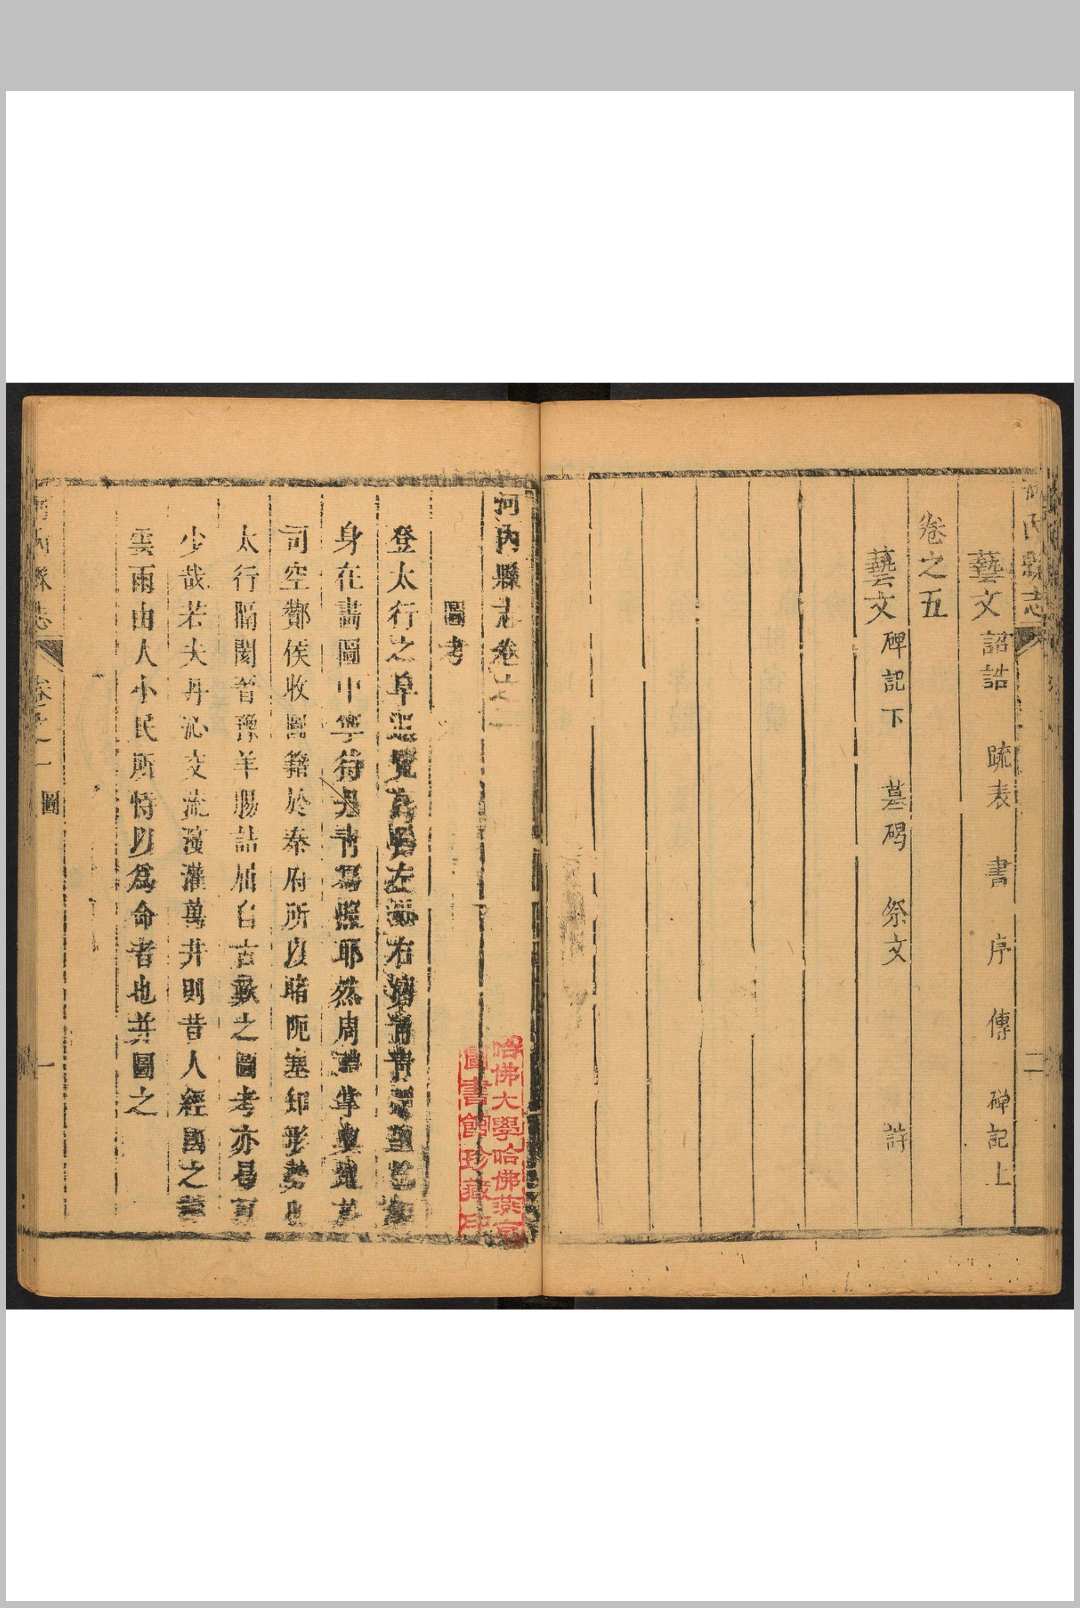 河內縣志
二
藝文 詔誥 疏表 書 序 傳 碑記上
卷之五
藝文 碑記下 墓碣 祭文 詩
河內縣志卷之一
圖考
登太行之阜
身在畫圖中寧待丹青為照耶然周
司空酇侯收圖籍於秦府所以睹阨塞知形勢也
太行隔閡晉豫羊腸詰屈自古歎之圖考亦易可
少哉若夫丹沁交流灌萬井則昔人經國之
雲雨由人小民所恃以為命者也並圖之
河內縣志
卷之一 圖
一
哈佛大學哈佛燕京
圖書館珍藏印